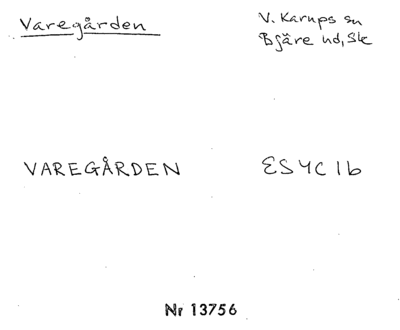 Varegården
V. Karups sn
Bjäre hd, Sk
VAREGÅRDEN
ES4C1b
Nr 13756